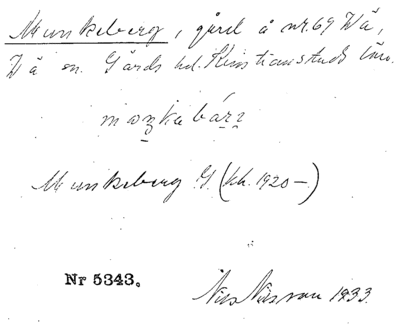 Munkeberg, gård å nr. 69 Vä,
Vä sn. Gärds hd. Kristianstads län.
mo̱ŋkabáṟı̱
Munkeberg G. (kb. 1920–)
Nr 5343.
Nils Nilsson 1933.